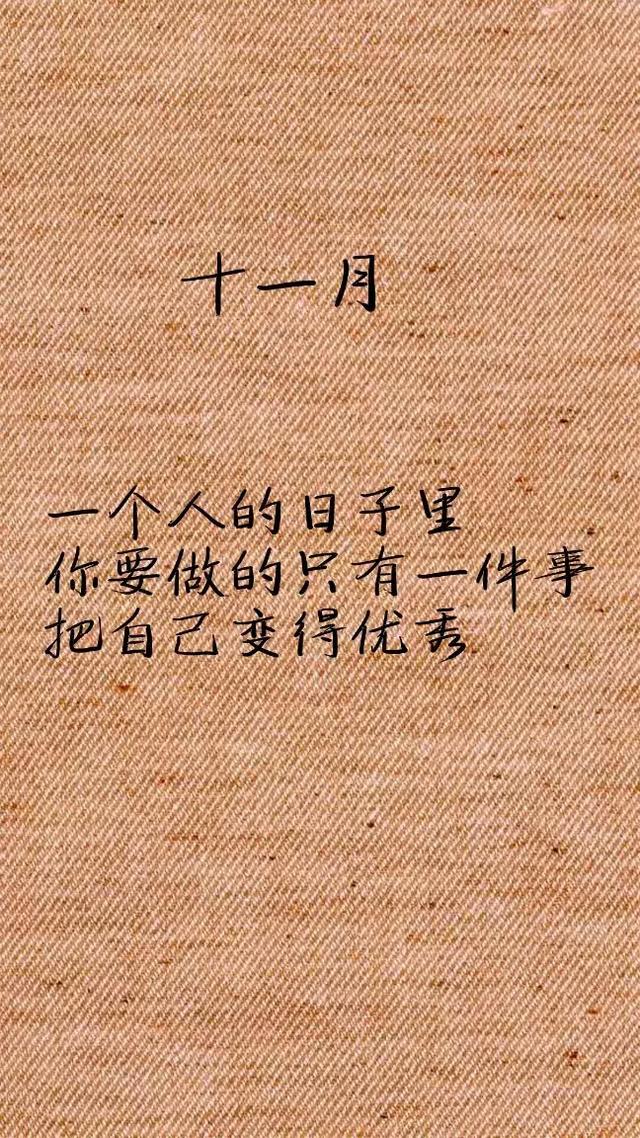 十一月
一个人的日子里
你要做的只有一件事
把自己变得优秀